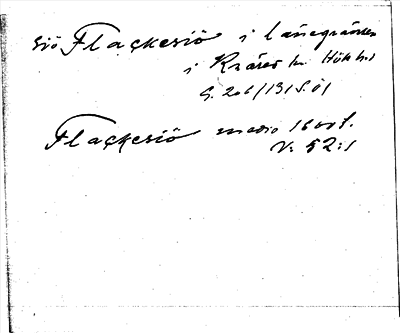 sjö Flackesiö i länsgränsen
i Knäred sn Höks hd
G. 206/1315.01
Flackesiö medio 1600 t.
V: 52:1